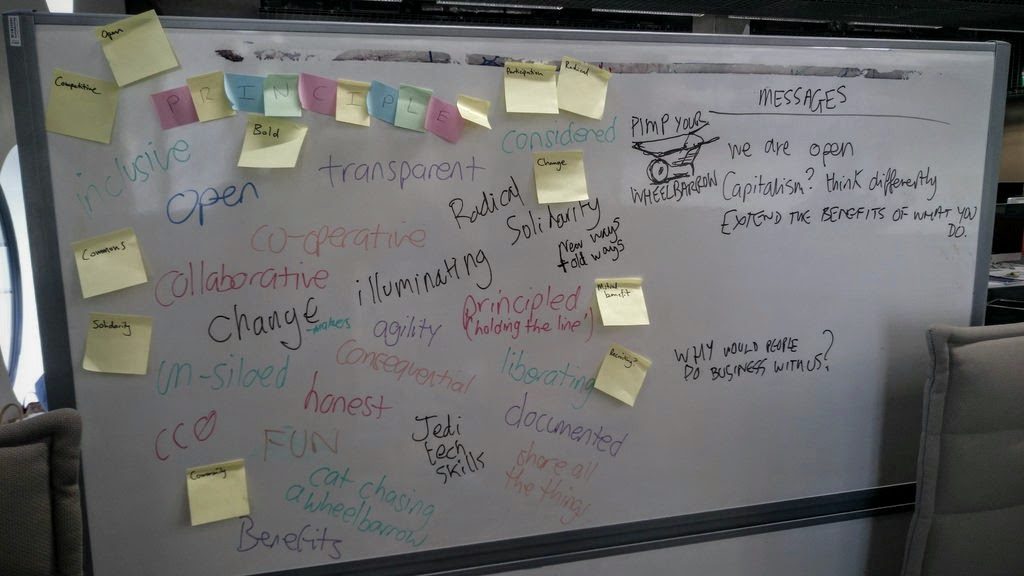 Open
Competitive
PRINCIPLE
Bold
Participation
Radical
inclusive
open
transparent
considered
Change
Radical
Solidarity
New ways
+old ways
co-operative
Commons
collaborative
illuminating
change
-makers
agility
principled
('holding the line')
Mutual
benefit
Solidarity
un-siloed
consequential
liberating
honest
documented
CC0
FUN
Jedi
tech
skills
share all
the things
Community
cat chasing
a wheelbarrow
Benefits
MESSAGES
PIMP YOUR
WHEELBARROW
we are open
Capitalism? think differently
EXTEND THE BENEFITS OF WHAT YOU
DO.
WHY WOULD PEOPLE
DO BUSINESS WITH US?